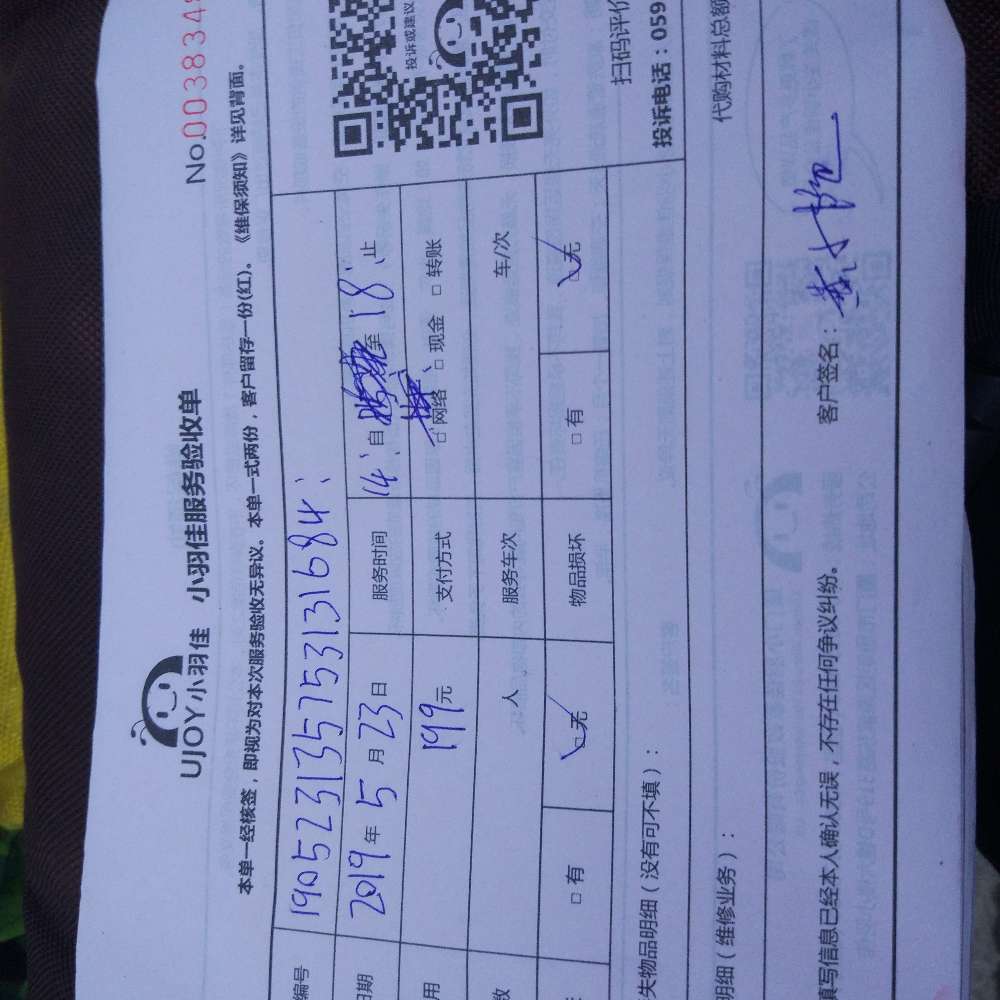 No.0038348
UJOY小羽佳 小羽佳服务验收单
本单一经核签，即视为对本次服务验收无异议。本单一式两份，客户留存一份(红)。《维保须知》详见背面。
编号 190523135753131684
日期 2019年5月23日 服务时间 14:自 至18:止
用 199元 支付方式 □网络 □现金 □转账
数 人 服务车次 车/次
□有 □无 物品损坏 □有 □无
投诉或建议
扫码评价
投诉电话：059
失物品明细（没有可不填）：
明细（维修业务）： 代购材料总额
填写信息已经本人确认无误，不存在任何争议纠纷。 客户签名：